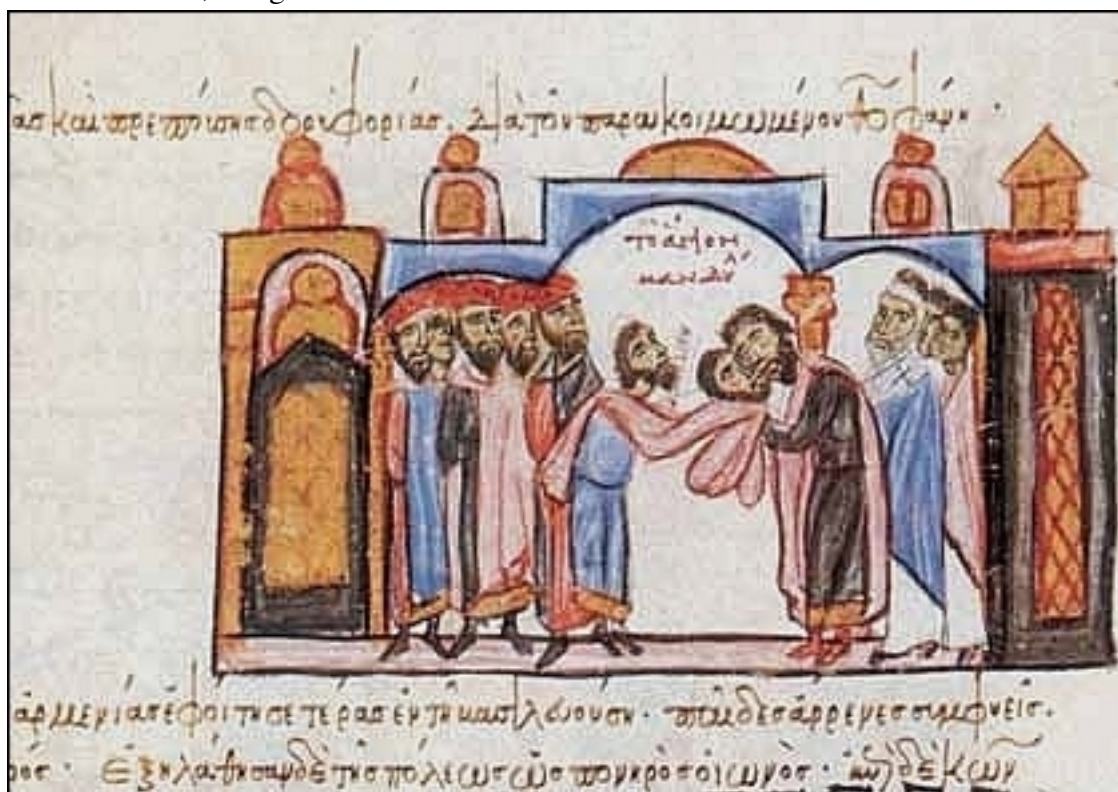 ας καὶ πρεπούσης δορυφορίας. διὰ τοῦ παρακοιμωμένου
τὸ ἅγιον
μανδύλ
ἀρμενίας ἐφοίτησε τέρας ἐν τῆ βασιλευούση. παῖδες ἄρρενες συμφυεῖς.
ρος. ἐξηλάθησαν δὲ τῆς πόλεως ὡς πονηρὸς οἰωνός.